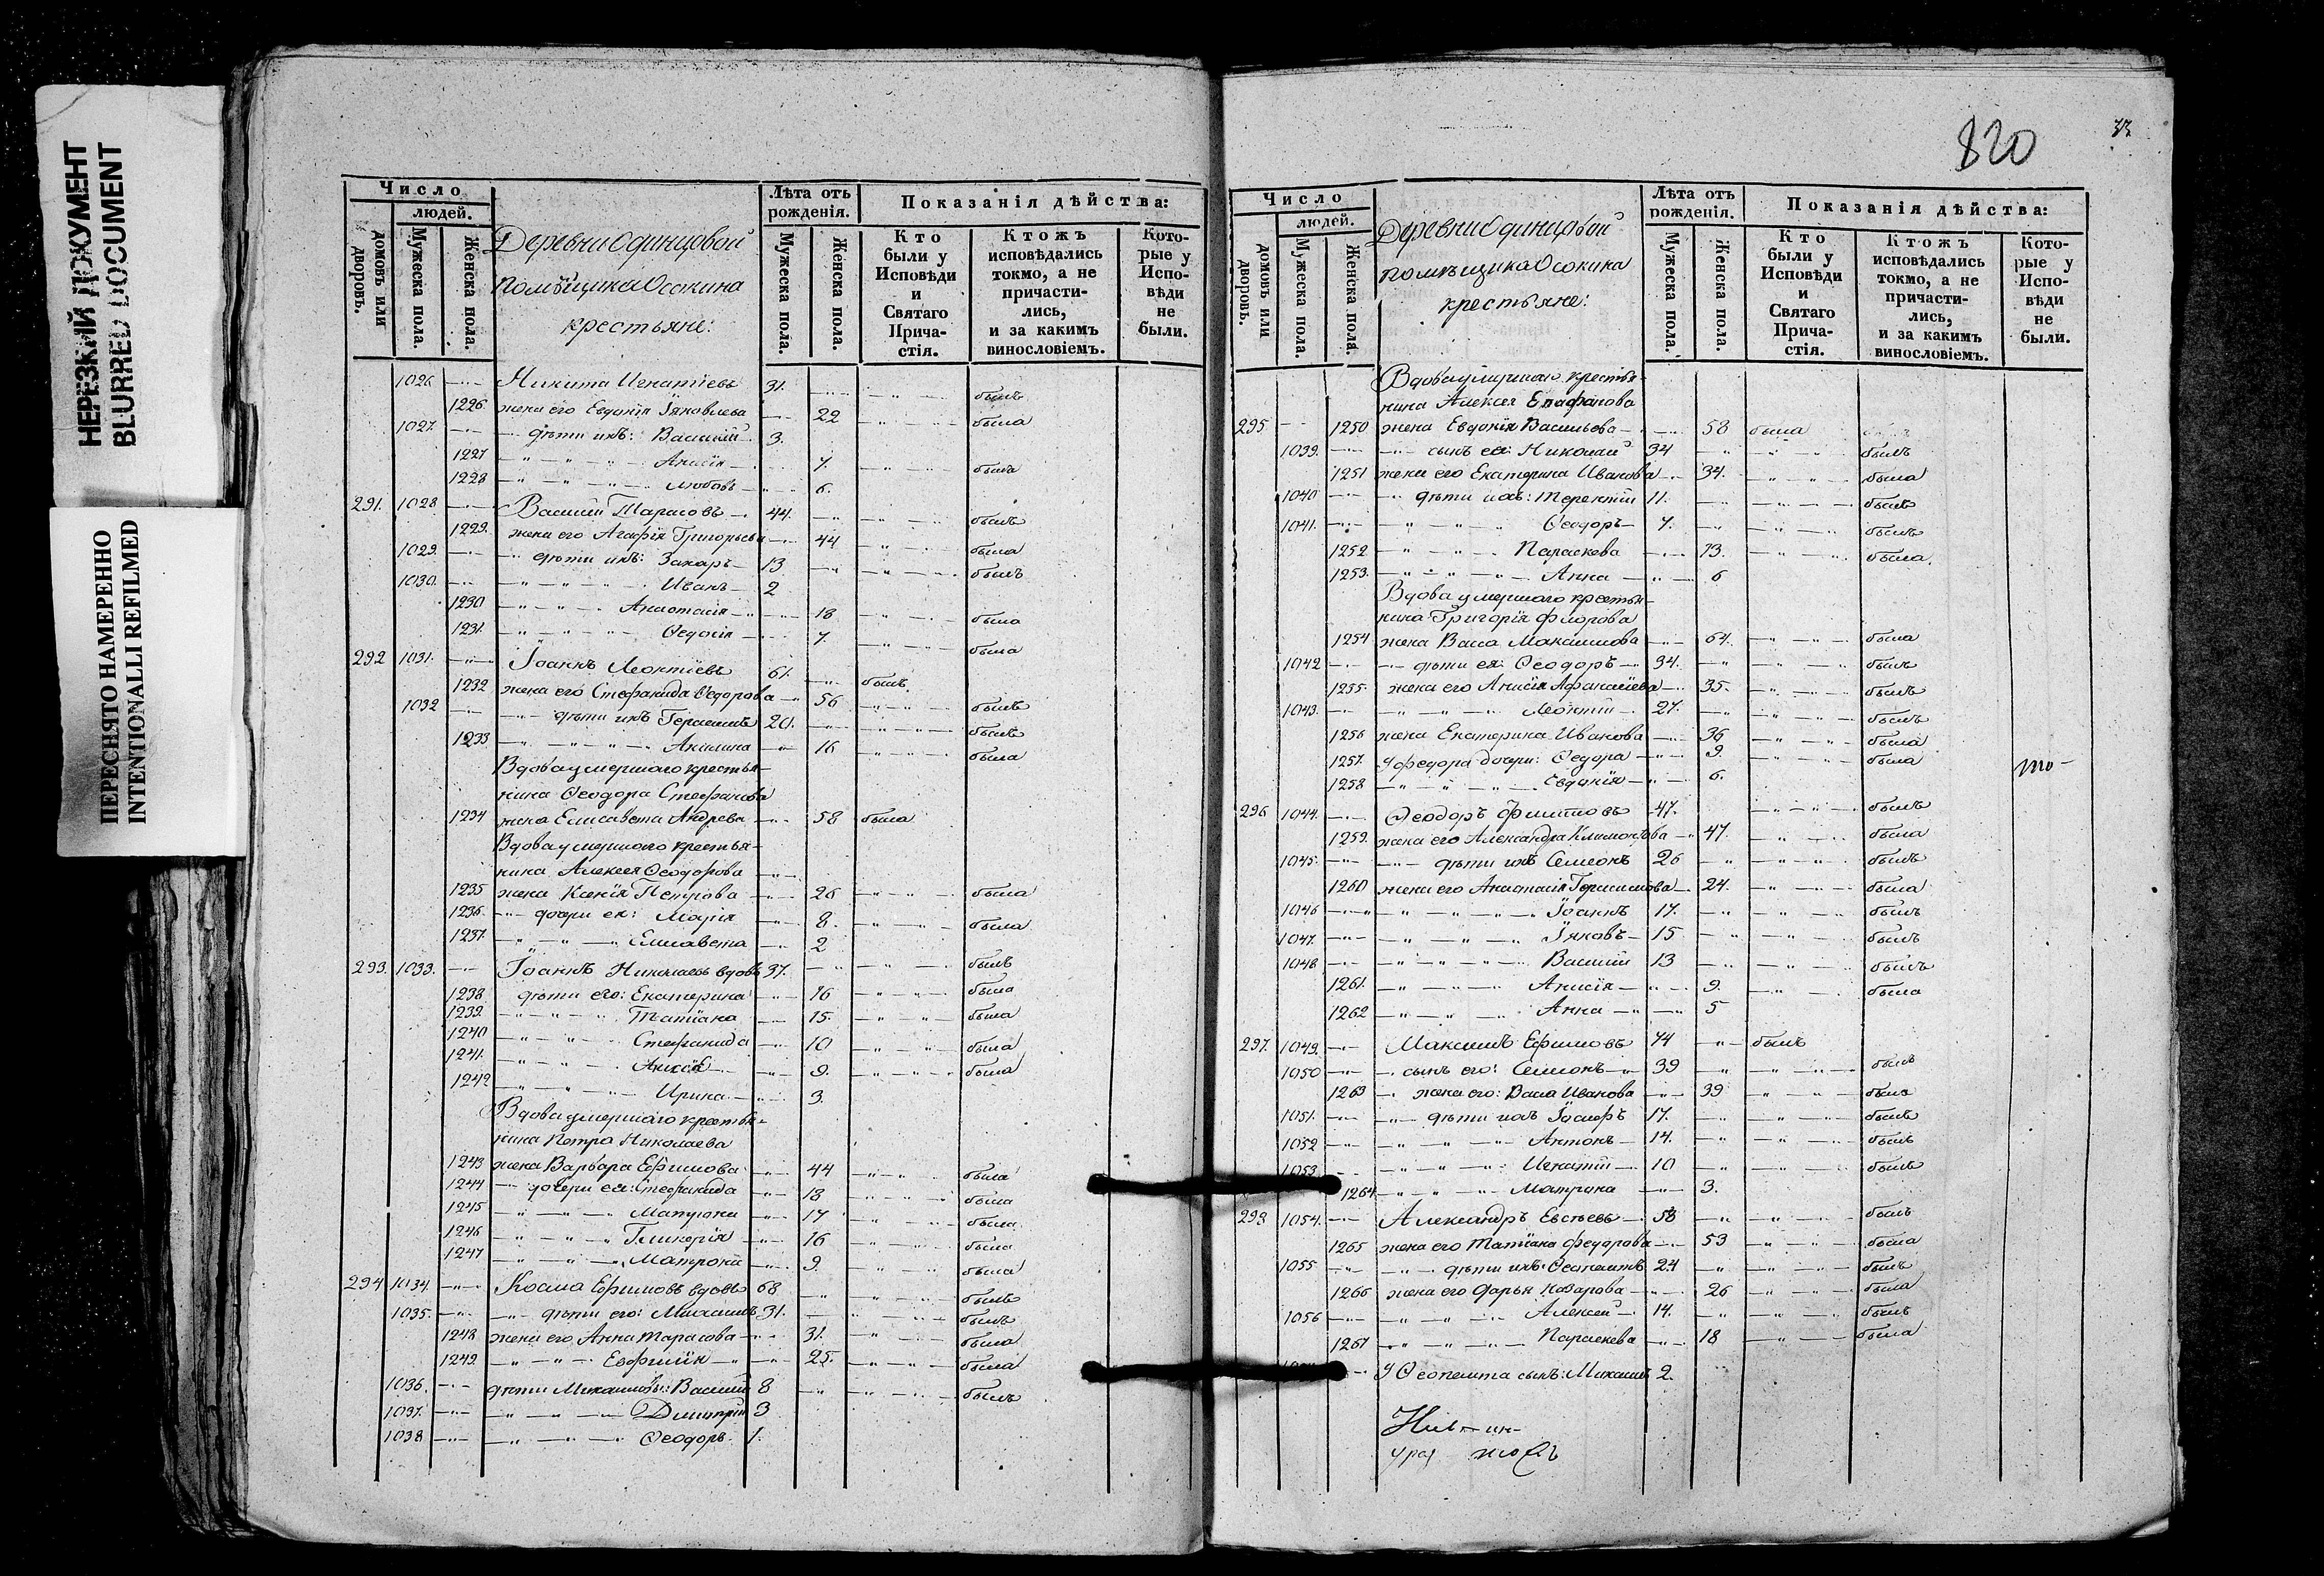 НЕРЕЗКИЙ ДОКУМЕНТ
BLURRED DOCUMENT
ПЕРЕСНЯТО НАМЕРЕННО
INTENTIONALLI REFILMED
Число
людей.
домовъ или дворовъ.
Мужеска пола.
Женска пола.
Деревни Одинцовой
помѣщика Осокина
крестьяне:
Лѣта отъ рожденія.
Мужеска пола.
Женска пола.
Показанія дѣйства:
Кто были у Исповѣди и Святаго Прича-стія.
Ктожъ исповѣдались токмо, а не причасти-лись, и за какимъ винословіемъ.
Кото-рые у Испо-вѣди не были.
1026 Никита Игнатіевъ 31. былъ
1226 жена его Евдокія Іяковлева 22 была
1027. дѣти ихъ: Василій 3.
1227 Анисія 7. была
1228 Любовь 6.
291. 1028 Василій Тарасовъ 44. былъ
1229. жена его Агафія Григорьева 44 была
1029. дѣти ихъ: Захаръ 13 былъ
1030. Иванъ 2
1230 Анастасія 18 была
1231. Ѳедосія 7. была
292 1031. Іоаннъ Леонтіевъ 61. былъ
1232 жена его Стефанида Ѳедорова 56 былъ
1032 дѣти ихъ Герасимъ 20. былъ
1233 Акилина 16 была
Вдова умершаго крестья-
нина Ѳеодора Стефанова
1234 жена Елисавета Андрева 58 была
Вдова умершаго крестья-
нина Алексея Ѳеодорова
1235 жена Ксенія Петрова 26 была
1236. дочри ея: Марія 8. была
1237. Елисавета 2
293. 1033. Іоаннъ Николаевъ вдовъ 37. былъ
1238 дѣти его: Екатерина 16 была
1239. Татіана 15. была
1240 Стефанида 10 была
1241. Анисія 9. была
1242 Ирина 3.
Вдова умершаго крестья-
нина Петра Николаева
1243 жена Варвара Ефимова 44 была
1244 дочери ея: Стефанида 18 была
1245 Матрона 17 была
1246 Гликерія 16 была
1247 Матрона 9. была
294 1034. Косма Ефимовъ вдовъ 68 былъ
1035. дѣти его: Михаилъ 31. былъ
1248 жена его Анна Тарасова 31. была
1249. Евфимія 25. была
1036. дѣти Михаиловы: Василій 8 былъ
1037. Димитрій 3
1038 Ѳеодоръ 1.
820
33
Число
людей.
домовъ или дворовъ.
Мужеска пола.
Женска пола.
Деревни Одинцовой
помѣщика Осокина
крестьяне:
Лѣта отъ рожденія.
Мужеска пола.
Женска пола.
Показанія дѣйства:
Кто были у Исповѣди и Святаго Прича-стія.
Ктожъ исповѣдались токмо, а не причасти-лись, и за какимъ винословіемъ.
Кото-рые у Испо-вѣди не были.
Вдова умершаго крестья-
нина Алексея Епифанова
295 1250 жена Евдокія Васильева 58 была
1039. сынъ ея: Николай 34 былъ
1251 жена его Екатерина Иванова 34. была
1040 дѣти ихъ: Терентій 11. былъ
1041. Ѳеодоръ 7. былъ
1252 Параскева 13. была
1253. Анна 6
Вдова умершаго крестья-
нина Григорія Фирова
1254 жена Васса Максимова 64. была
1042 дѣти ея: Ѳеодоръ 34. былъ
1255. жена его Анисія Афанасіева 35. былъ
1043. Леонтій 27. былъ
1256 жена Екатерина Иванова 36 была
1257. у Федора дочери: Ѳедора 9. была
1258 Евдокія 6.
296 1044. Ѳеодоръ Филиповъ 47. былъ
1259. жена его Александра Климонтова 47. была
1045. дѣти ихъ Симеонъ 26 былъ
1260 жена его Анастасія Герасимова 24. была
1046 Іоаннъ 17. былъ
1047. Іяковъ 15 былъ
1048 Василій 13 былъ
1261. Анисія 9. была
1262 Анна 5
297. 1049. Максимъ Ефимовъ 74 былъ
1050 сынъ его: Симионъ 39 былъ
1263 жена его: Васса Иванова 39 была
1051. дѣти ихъ Іосифъ 17. былъ
1052 Антонъ 14. былъ
1053 Игнатій 10 былъ
1264 Матрона 3.
298 1054. Александръ Евстьевъ 58 былъ
1265 жена его Татіана Федорова 53 была
1055 дѣти ихъ: Ѳеопемптъ 24 былъ
1266 жена его Дарья Назарова 26 была
1056 Алексей 14. былъ
1267 Параскева 18 была
У Ѳеопемпта сынъ: Михаилъ 2.